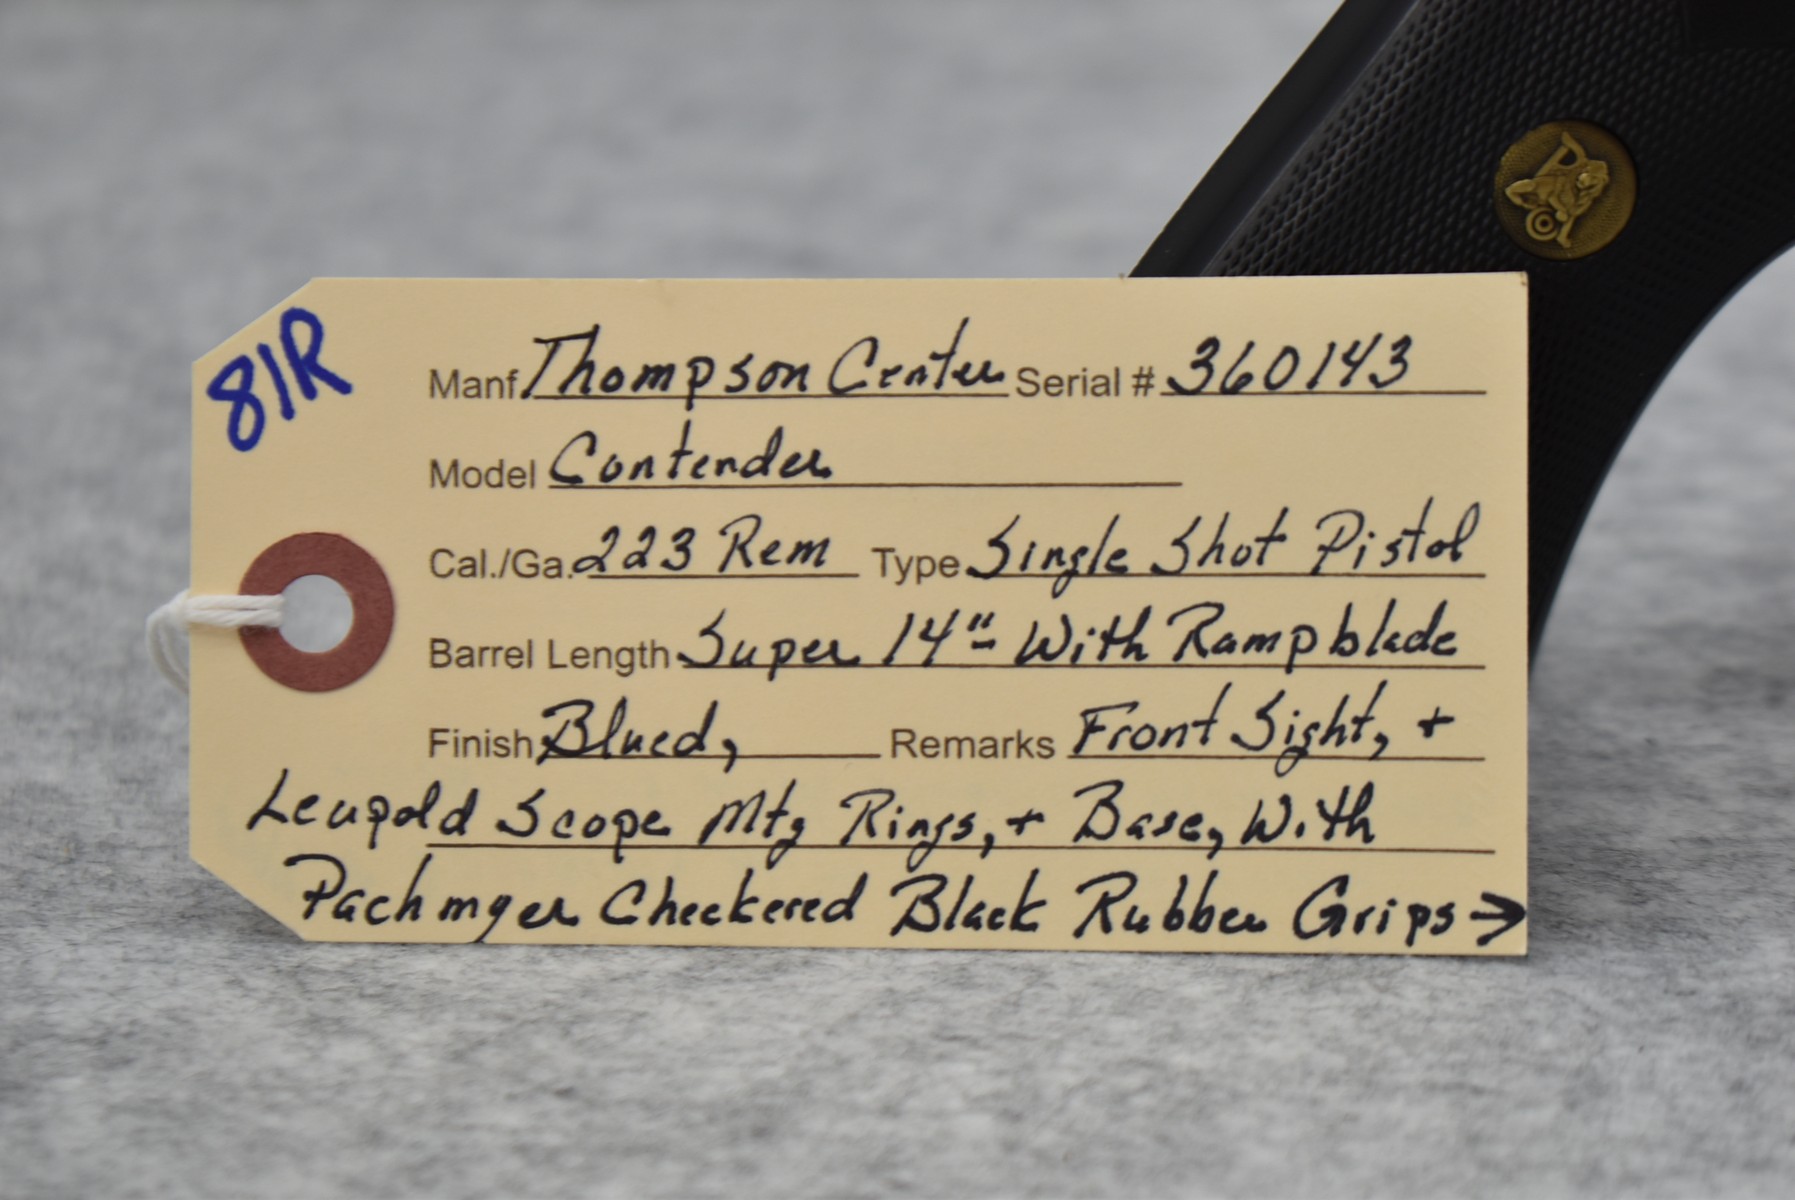 81R
Manf. Thompson Center Serial # 360143
Model Contender
Cal./Ga. 223 Rem Type Single Shot Pistol
Barrel Length Super 14"- With Ramp blade
Finish Blued, Remarks Front Sight, +
Leupold Scope Mtg Rings, + Base, With
Pachmyer Checkered Black Rubber Grips →